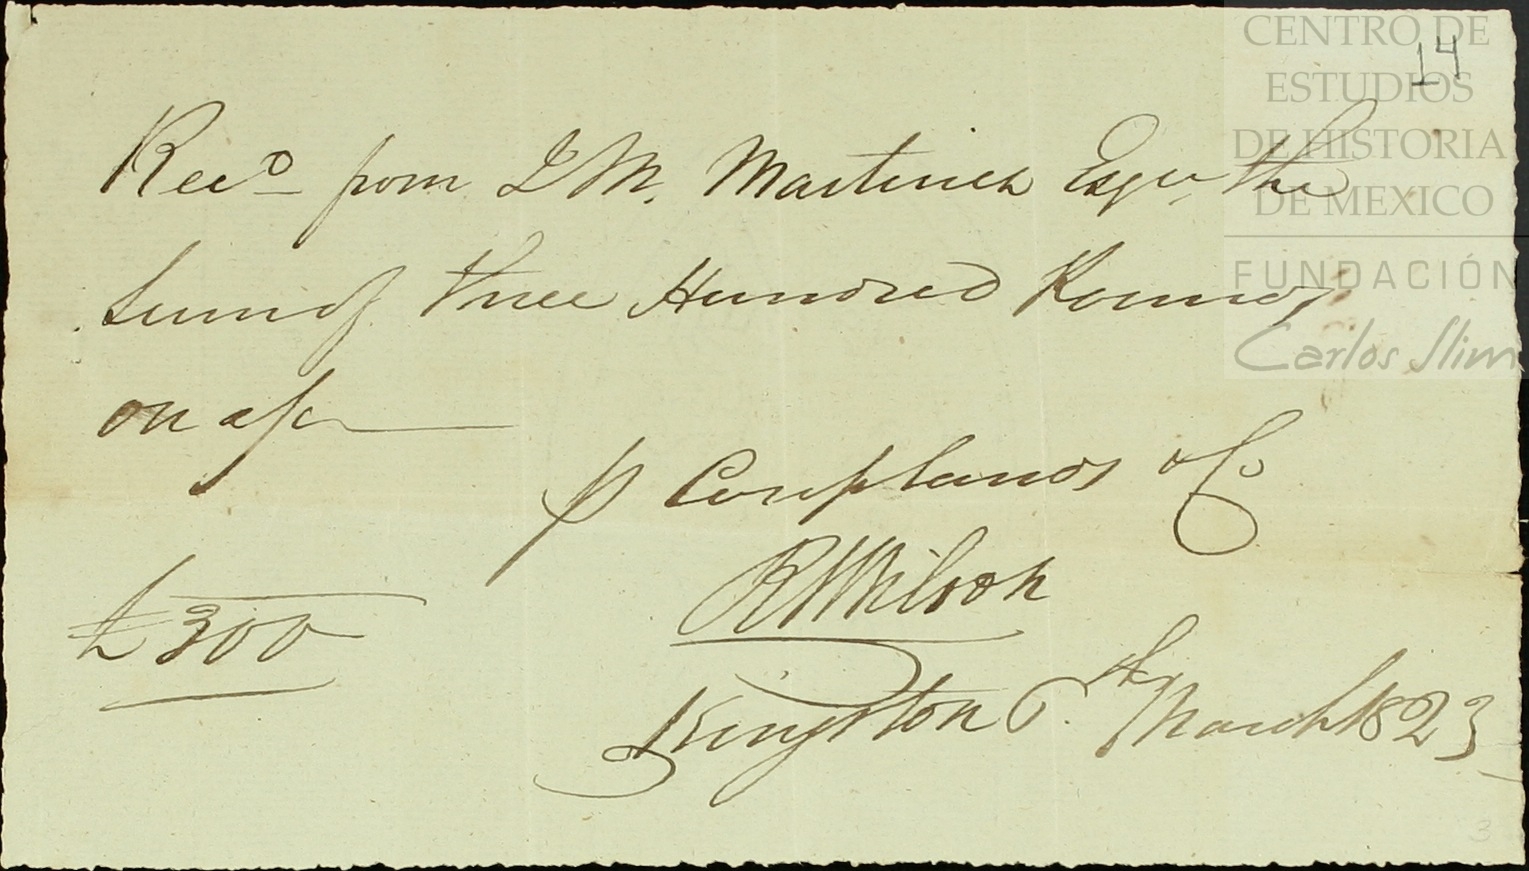 14
Rec.d from J M. Martinich Esqr. the
Sum of three Hundred Pounds
on a/c
p Couplands & Co
R Wilson
£300
Kingston 6th March 1823
3
CENTRO DE
ESTUDIOS
DE HISTORIA
DE MEXICO
FUNDACIÓN
Carlos Slim